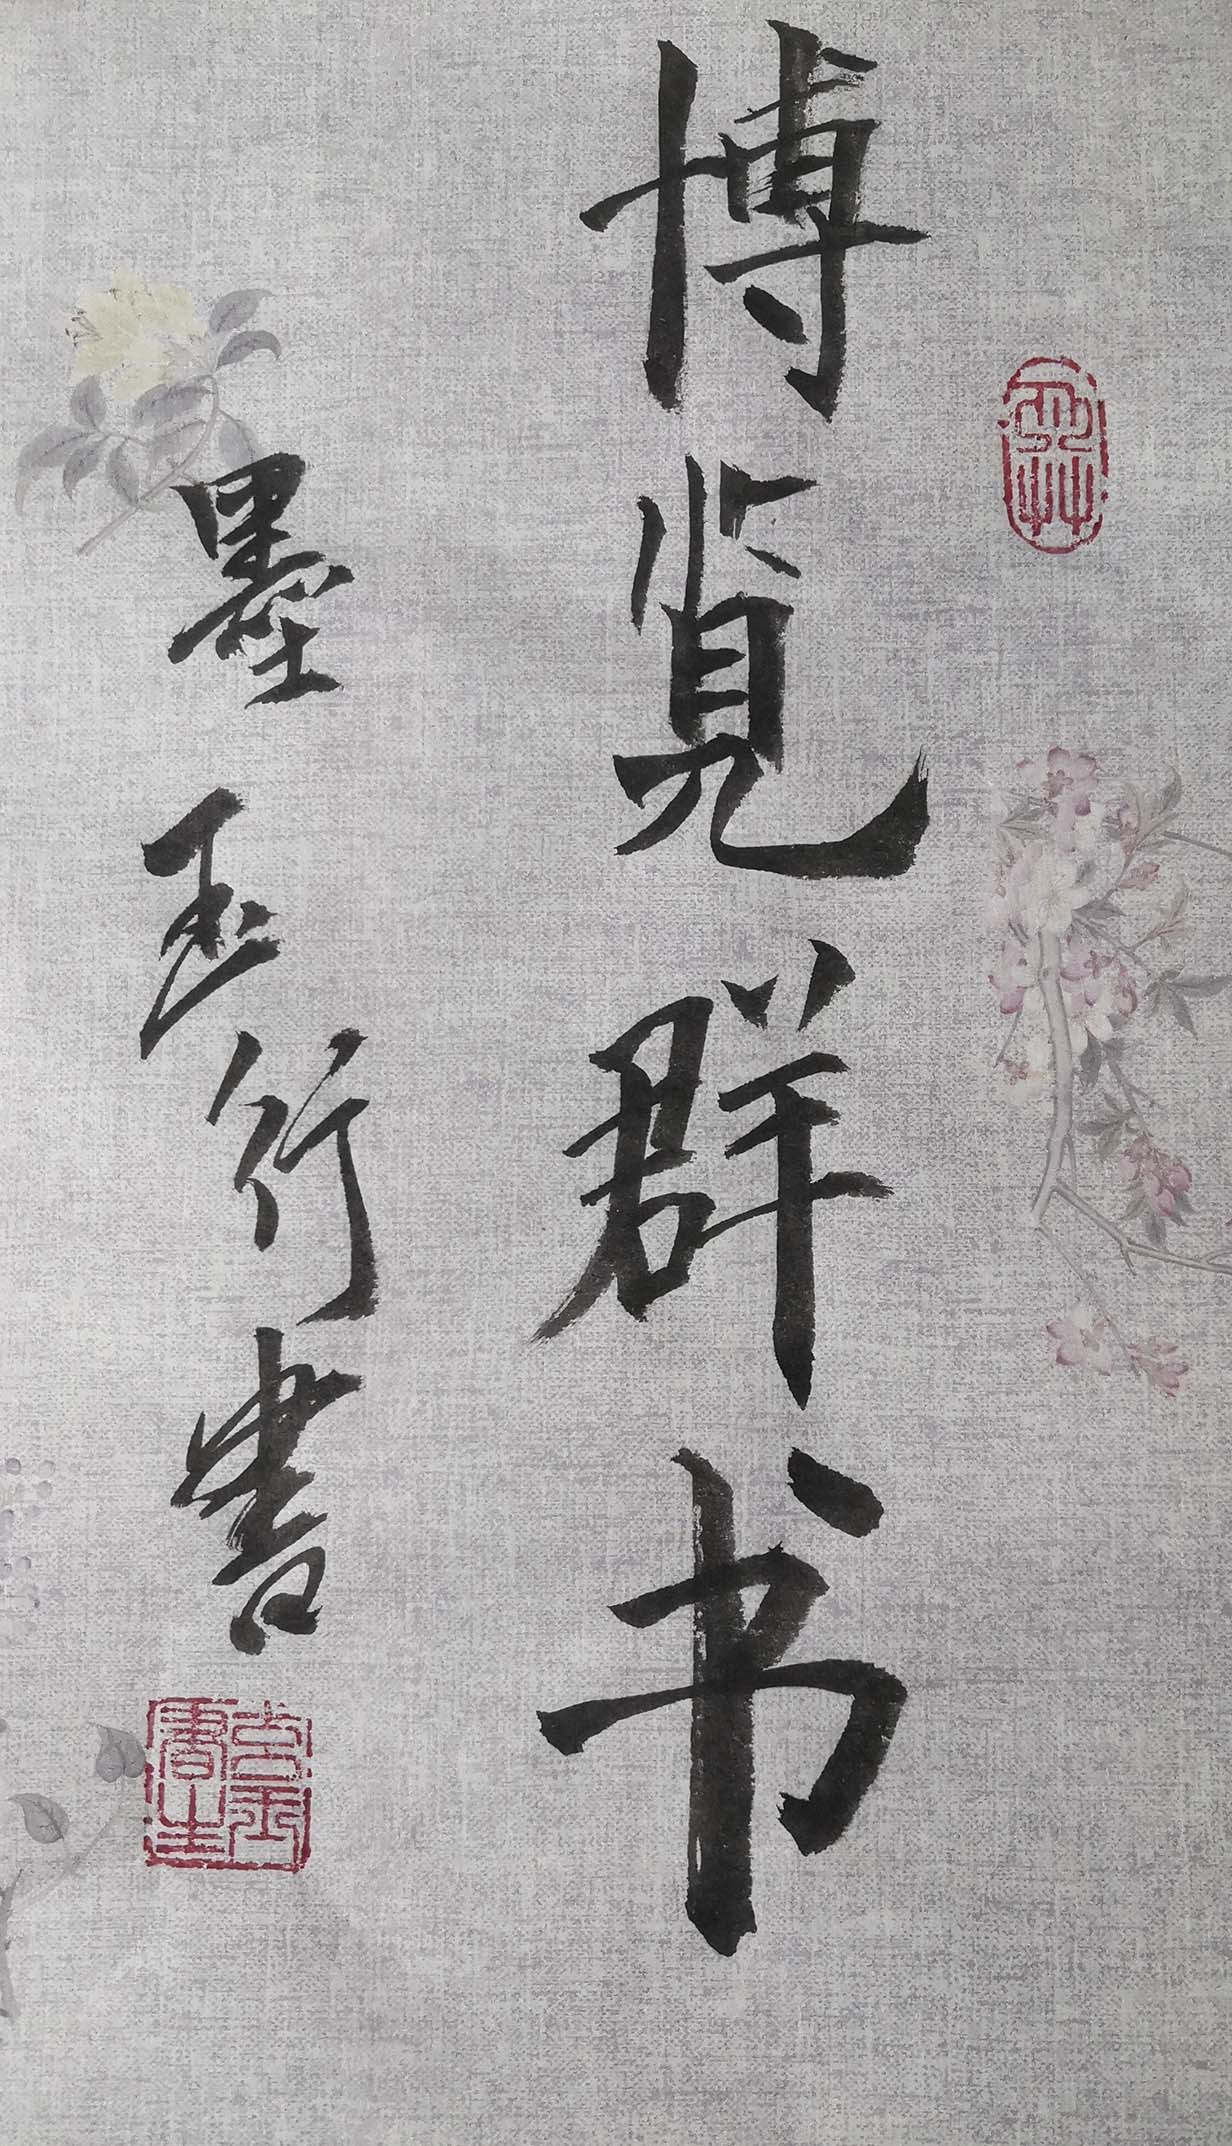 博览群书
墨玉行書